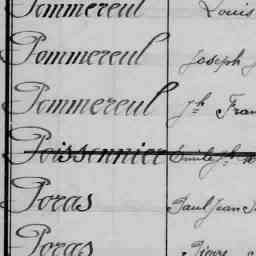 Pommereul Louis
Pommereul Joseph J
Pommereul Jh Fran
Poissonnier Emile Jh
Poras Paul Jean
Poras Pierre